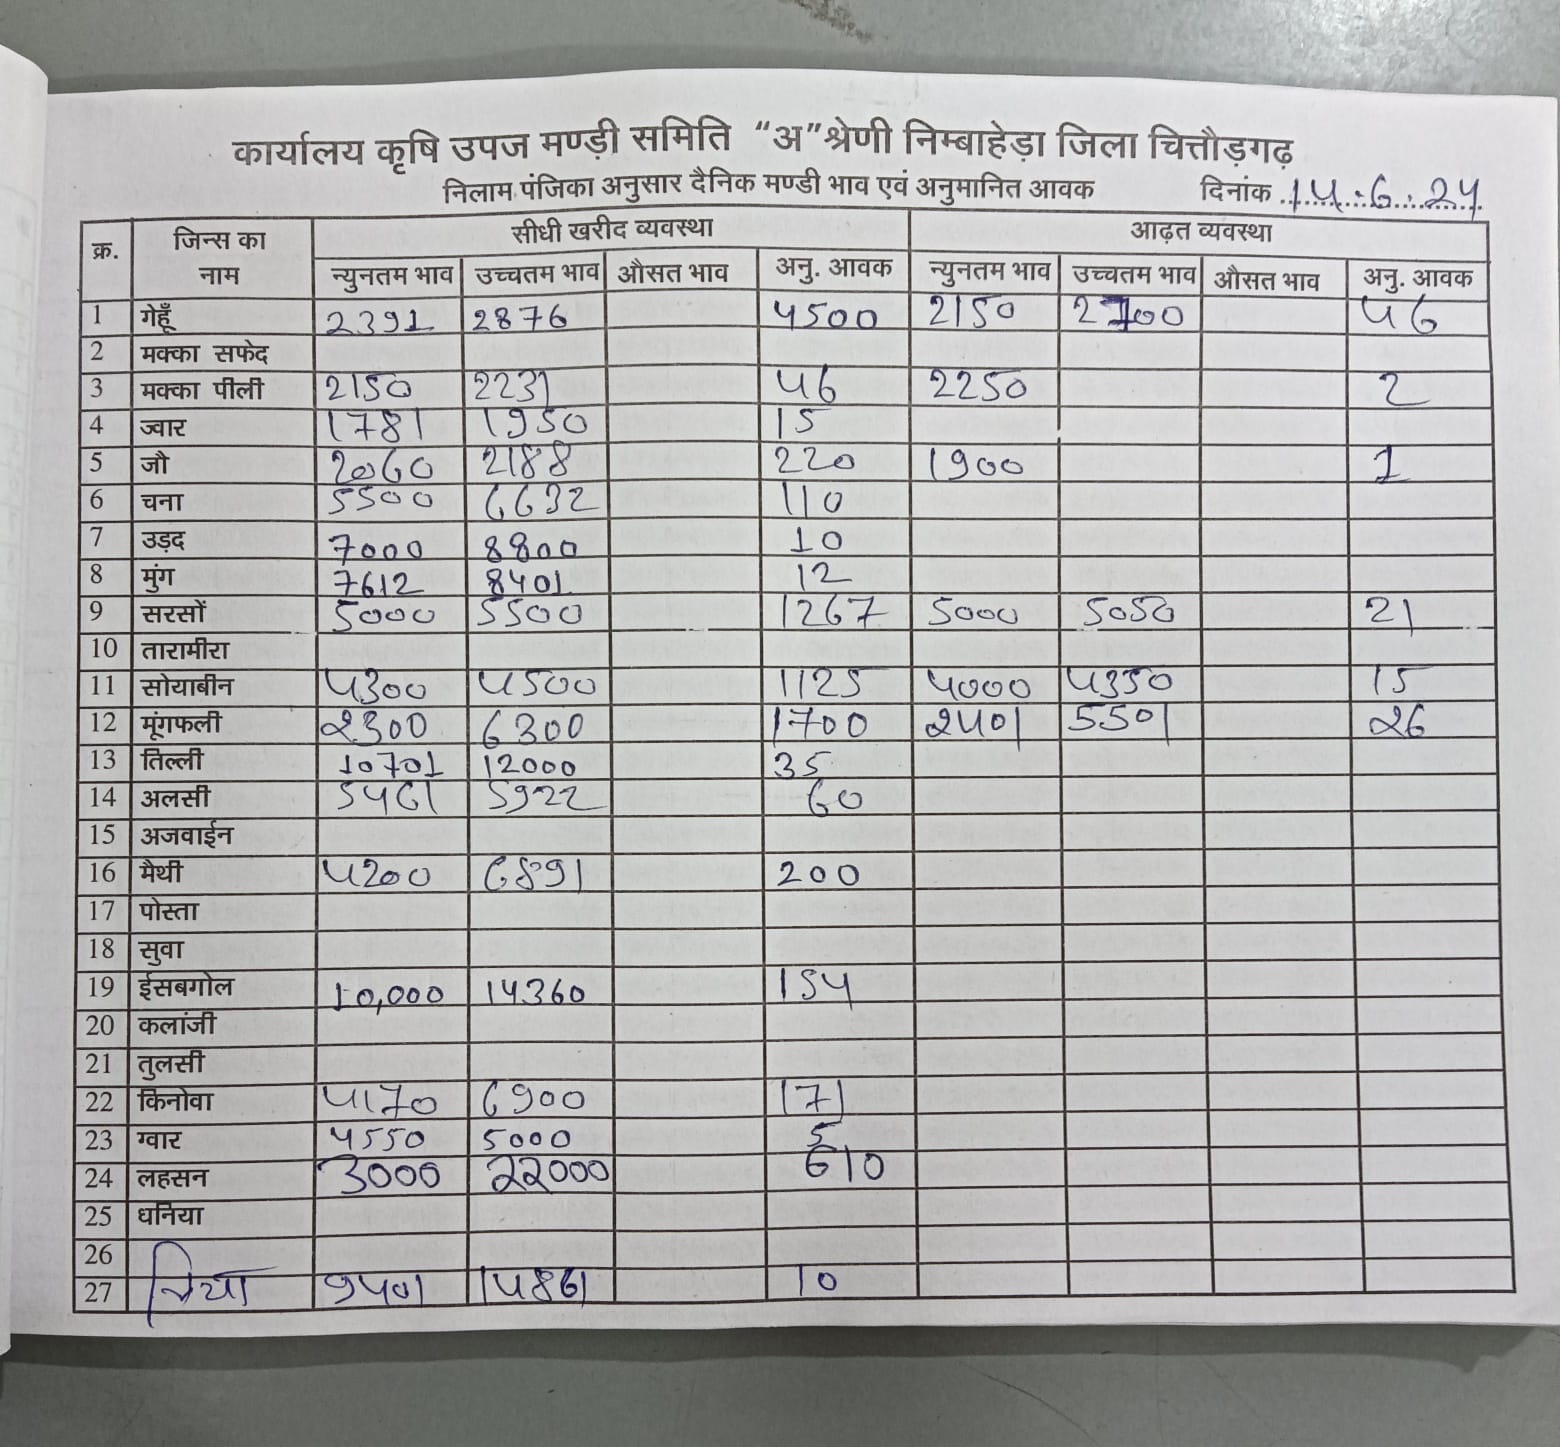 कार्यालय कृषि उपज मण्ड़ी समिति "अ" श्रेणी निम्बाहेड़ा जिला चित्तौड़गढ़
निलाम पंजिका अनुसार दैनिक मण्डी भाव एवं अनुमानित आवक दिनांक 14.6.24
क्र. जिन्स का नाम सीधी खरीद व्यवस्था आढ़त व्यवस्था
न्युनतम भाव उच्चतम भाव औसत भाव अनु. आवक न्युनतम भाव उच्चतम भाव औसत भाव अनु. आवक
1 गेहूँ 2391 2876 4500 2150 2700 46
2 मक्का सफेद
3 मक्का पीली 2150 2231 46 2250 2
4 ज्वार 1781 1950 15
5 जौ 2060 2188 220 1900 1
6 चना 5500 6632 110
7 उड़द 7000 8800 10
8 मुंग 7612 8401 12
9 सरसों 5000 5500 1267 5000 5050 21
10 तारामीरा
11 सोयाबीन 4300 4500 1125 4000 4350 15
12 मूंगफली 2300 6300 1700 2401 5501 26
13 तिल्ली 10701 12000 35
14 अलसी 5461 5922 60
15 अजवाईन
16 मैथी 4200 6891 200
17 पोस्ता
18 सुवा
19 ईसबगोल 10,000 14360 154
20 कलांजी
21 तुलसी
22 किनोवा 4170 6900 171
23 ग्वार 4550 5000 5
24 लहसन 3000 22000 610
25 धनिया
26
27 9401 14861 10